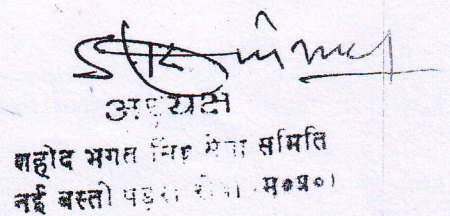 अध्यक्ष
शहीद भगत सिंह सेवा समिति
नई बस्ती पड़रा रीवा (म०प्र०)